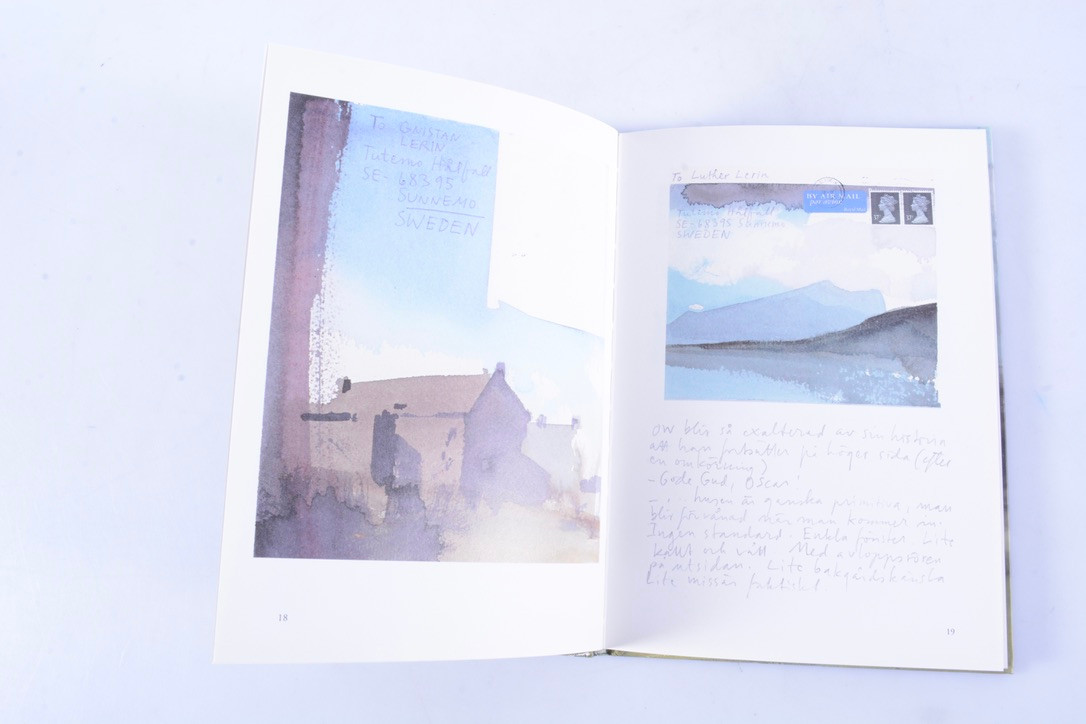 To GNISTAN
LERIN
Tutemo Hälfall
SE-68395
SUNNEMO
SWEDEN
18
To Luther Lerin
BY AIR MAIL
par avion
Tutemo Hälfall
SE-68395 Sunnemo
SWEDEN
OW blir så exalterad av sin historia
att han fortsätter på höger sida (efter
en omkörning)
- Gode Gud, Oscar!
husen är ganska primitiva, man
blir förvånad när man kommer in.
Ingen standard. Enkla fönster. Lite
kallt och vått. Med avloppsrören
på utsidan. Lite bakgårdskänsla
Lite misär faktiskt
19